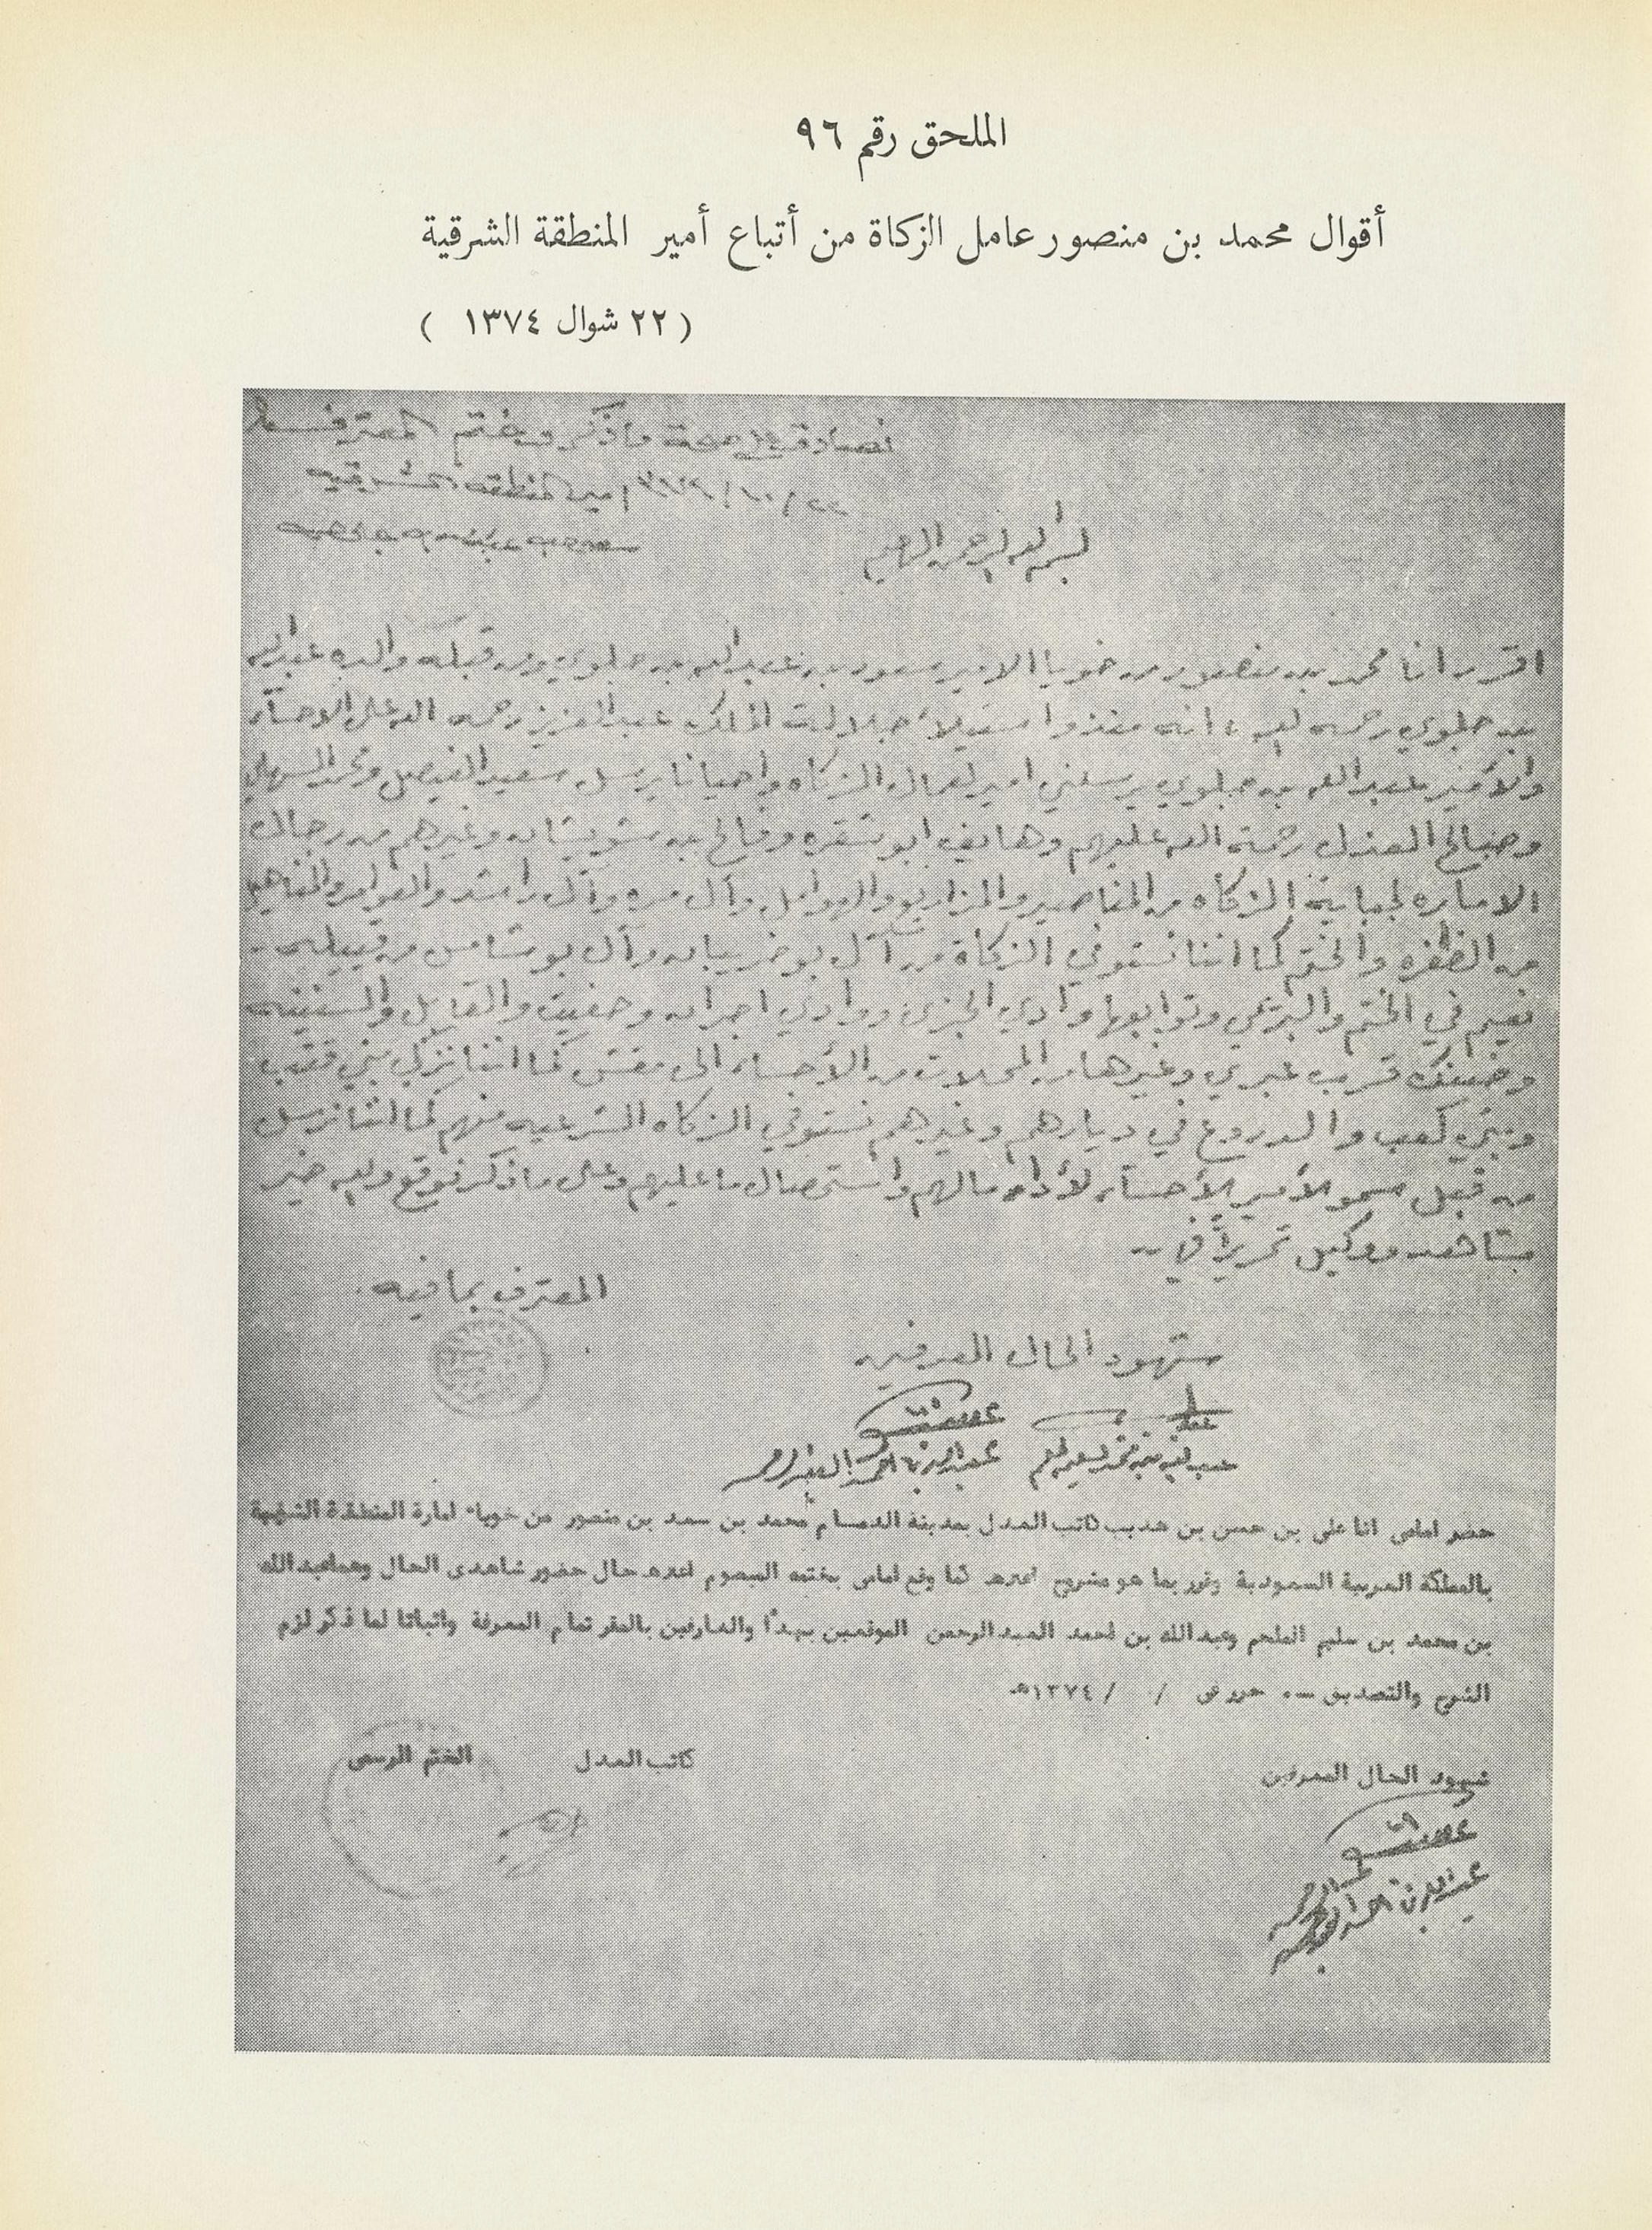 الملحق رقم ٩٦
أقوال محمد بن منصور عامل الزكاة من أتباع أمير المنطقة الشرقية
( ٢٢ شوال ١٣٧٤ )
نصادق على صحة ما ذكر وختم المعترف
٢٢/١٠/١٣٧٤ امير المنطقه الشرقيه
سعود بن عبدالله بن جلوي
بسم الله الرحمن الرحيم
اقرر انا محمد بن منصور من خويا الامير سعود بن عبدالله بن جلوي ومن قبله والده عبدالله
بن جلوي رحمه الله انه منذو استيلاء جلالت الملك عبدالعزيز رحمه الله على الاحساء
والأمير عبدالله بن جلوي يرسلني امير لعمال الزكاه واحيانا يرسل سعيد الفيصل ومحمد السهلي
وصالح العذل رحمة الله عليهم وهايف ابو شقره وفالح بن وغيرهم من رجال
الاماره لجباية الزكاه من المناصير والمزاريع والهوامل وآل مره وآل راشد والعوامر والمناهيل
من الظفره والختم كما اننا نستوفي الزكاة من آل بو خريبان وآل بو شامس من قبيلة
نعيم في الختم والبريمي وتوابعها وادي الجزى ووادي اجران وحفيت والقابل والسنينه
وضنك قريب عبري وغيرها من المحلات من الأحساء الى كما اننا نزكي بني قتب
وبني كعب والدروع في ديارهم وغيرهم نستوفي الزكاه الشرعيه منهم كما اننا نرسل
من قبل سمو الأمير الأحساء لأداء مالهم واستحصال ما عليهم وعلى ما ذكر نوقع والله خير
شاهد ووكيل تحريراً في
المعترف بما فيه
شهود الحال المعرفين
عبدالله بن محمد السليم الملحم عبدالله بن احمد العبدالرحمن
حضر امامى انا على بن حسن بن هديب كاتب العدل بمدينة الدمام محمد بن سعد بن منصور من خوياء امارة المنطقة الشرقية
بالمملكة العربية السعودية وقرر بما هو مشروح اعلاه كما وقع امامى بختمه المبصوم اعلاه حال حضور شاهدى الحال وهما عبدالله
بن محمد بن سليم الملحم وعبدالله بن احمد العبدالرحمن الموقعين بهذا والعارفين بالمقر تمام المعرفة واثباتا لما ذكر لزم
الشرح والتصديق ــ٠ حرر فى / / ١٣٧٤هـ
شهود الحال المعرفين
كاتب العدل
الختم الرسمى
عبدالله بن احمد العبدالرحمن